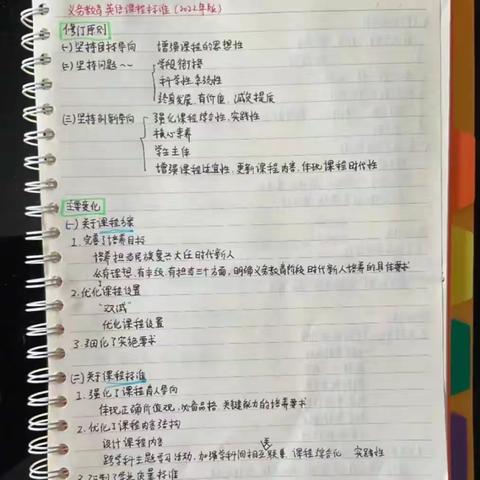 义务教育英语课程标准(2022年版)
修订原则
(一)坚持目标导向 增强课程的思想性
(二)坚持问题~~ 学段衔接
科学性,系统性
终身发展,有价值,减负提质
(三)坚持创新导向 强化课程综合性,实践性
核心素养
学生主体
增强课程适宜性,更新课程内容,体现课程时代性
主要变化
(一)关于课程方案
1.完善了培养目标
培养担当民族复兴大任时代新人
从有理想,有本领,有担当三个方面,明确义务教育阶段时代新人培养的具体要求
2.优化课程设置
"双减"
优化课程设置
3.细化了实施要求
(二)关于课程标准
1.强化了课程育人导向
体现正确价值观,必备品格,关键能力的培养要求
2.优化了课程内容结构
设计课程内容
跨学科主题学习活动,加强学科间相互联系 课程综合化 实践性
3.研制了学业质量标准